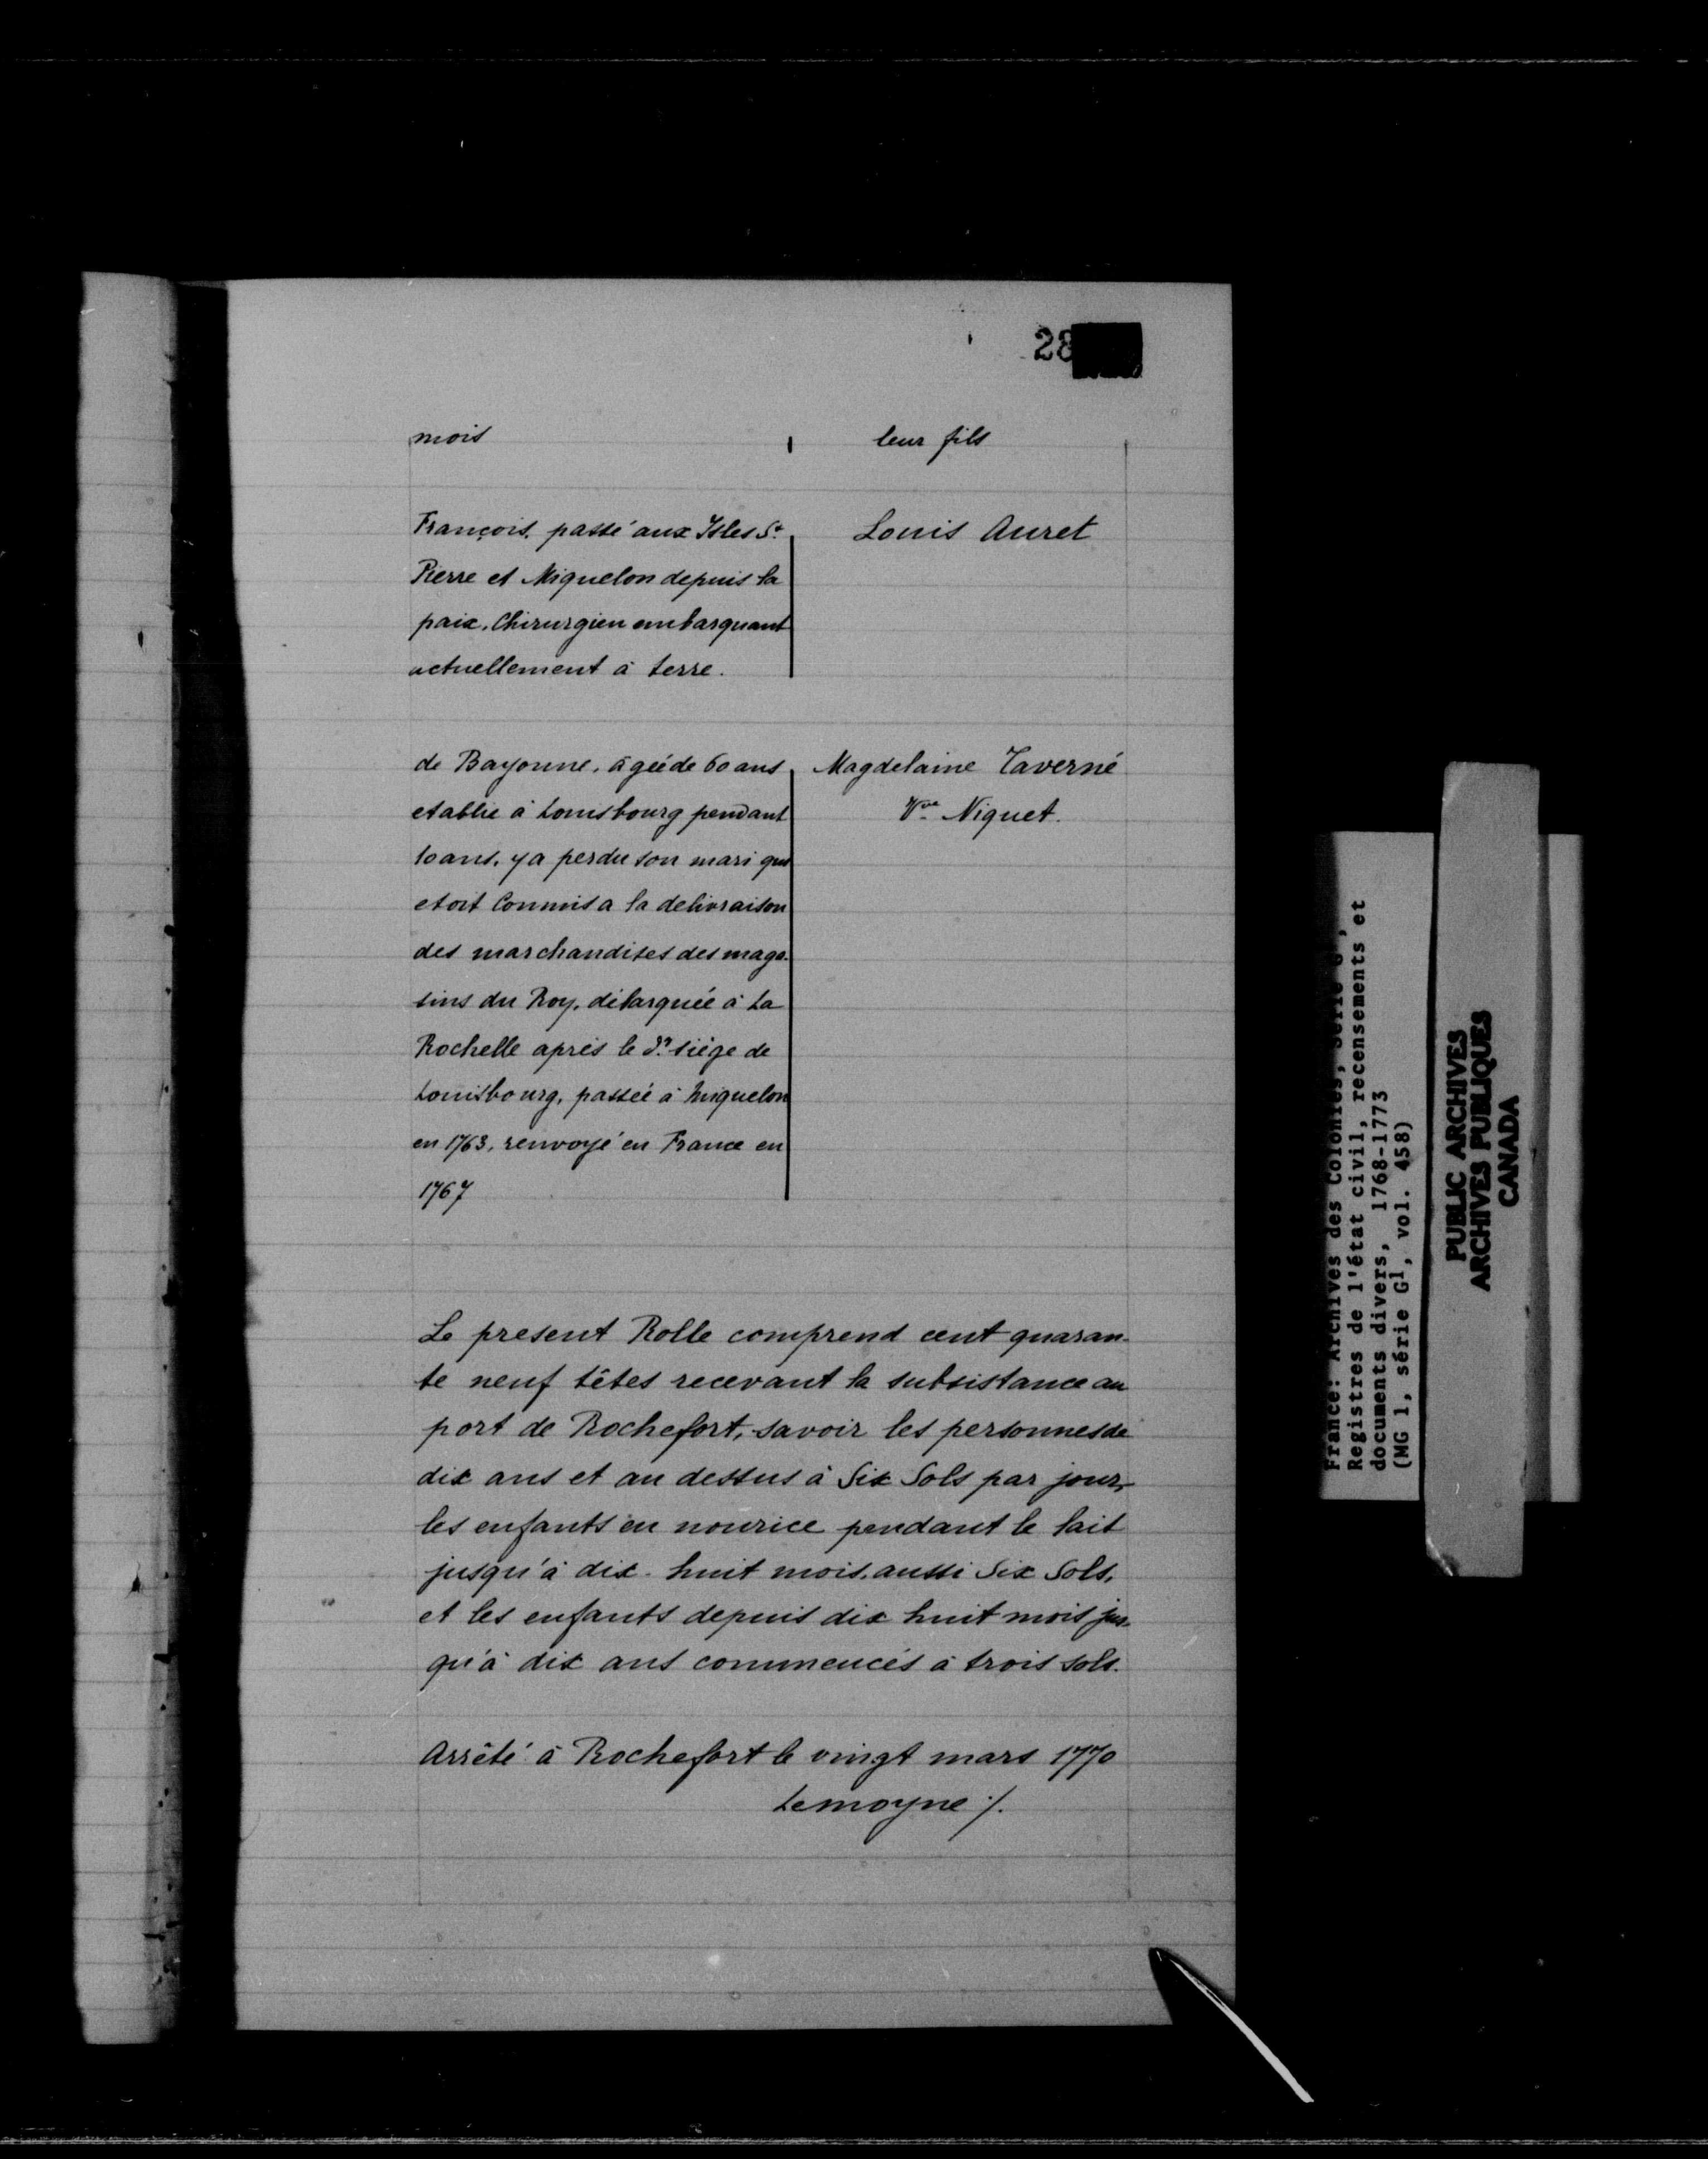 28
mois
leur fils
François, passé aux Isles St.
Pierre et Miquelon depuis la
paix. Chirurgien embarquant
actuellement à terre.
Louis Auret
de Bayonne, agée de 60 ans
etablie à Louisbourg pendant
10 ans, y a perdu son mari qui
etoit Commis a la delivraison
des marchandises des maga-
sins du Roy, débarquée à La
Rochelle après le dr. siège de
Louisbourg, passée à Miquelon
en 1763, renvoyé en France en
1767
Magdelaine Taverné
Vve Niquet.
Le present Rolle comprend cent quaran-
te neuf têtes recevant la subsistance au
port de Rochefort, savoir les personnes de
dix ans et au dessus à Six Sols par jour,
les enfants en nourice pendant le lait
jusqu'à dix-huit mois, aussi Six Sols,
et les enfants depuis dix huit mois jus-
qu'à dix ans commencés à trois sols.
Arrêté à Rochefort le vingt mars 1770
Lemoyne ./.
France: Archives des Colonies, Série G1,
Registres de l'état civil, recensements et
documents divers, 1768-1773
(MG 1, série G1, vol. 458)
PUBLIC ARCHIVES
ARCHIVES PUBLIQUES
CANADA